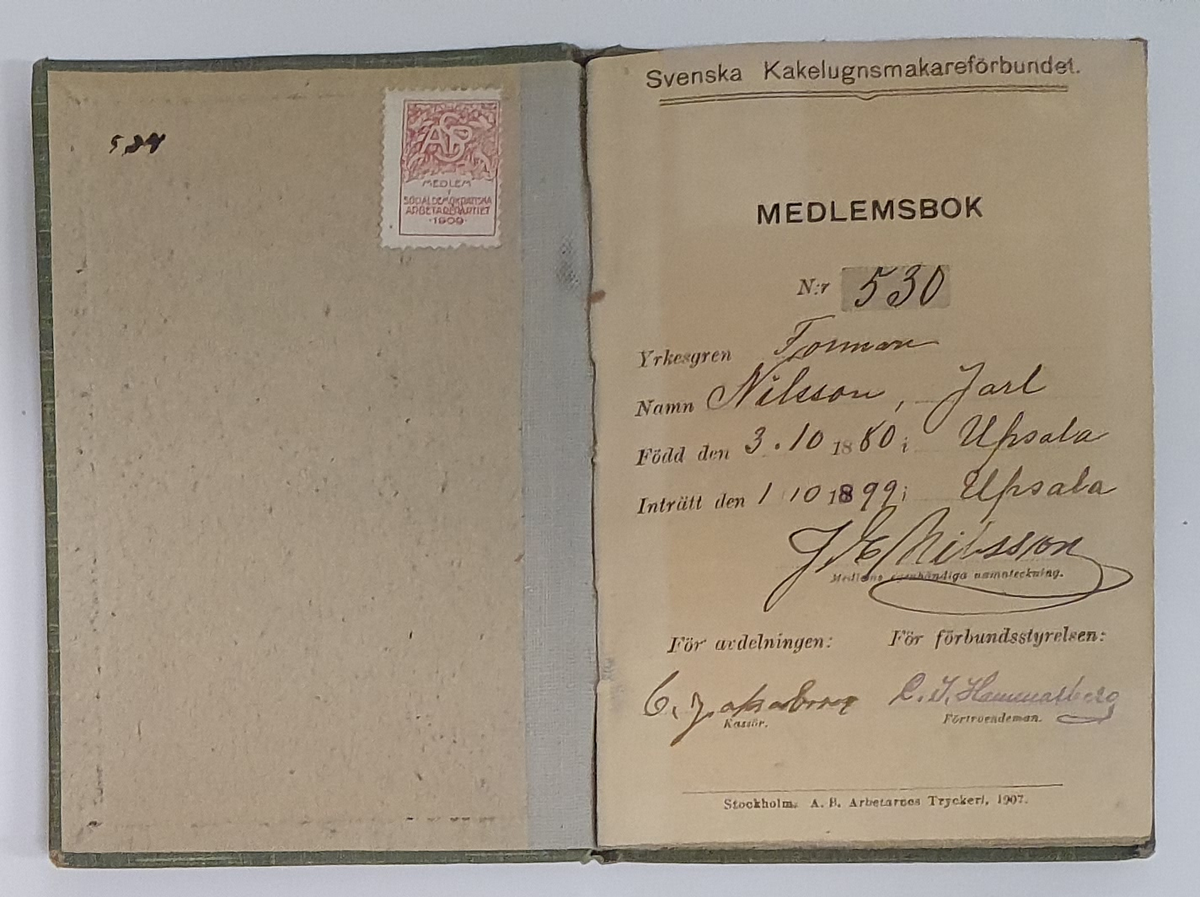 534
ASP
MEDLEM
I
SOCIALDEMOKRATISKA
ARBETAREPARTIET
·1909·
Svenska Kakelugnsmakareförbundet.
MEDLEMSBOK
N:r 530
Yrkesgren Forman
Namn Nilsson, Jarl
Född den 3.10 1880 i Upsala
Inträtt den 1 10 1899 i Upsala
J E Nilsson
Medlems egenhändiga namnteckning.
För avdelningen: För förbundsstyrelsen:
C. Jakobsson C. J. Hammarberg
Kassör. Förtroendeman.
Stockholm. A. B. Arbetarnes Tryckeri, 1907.